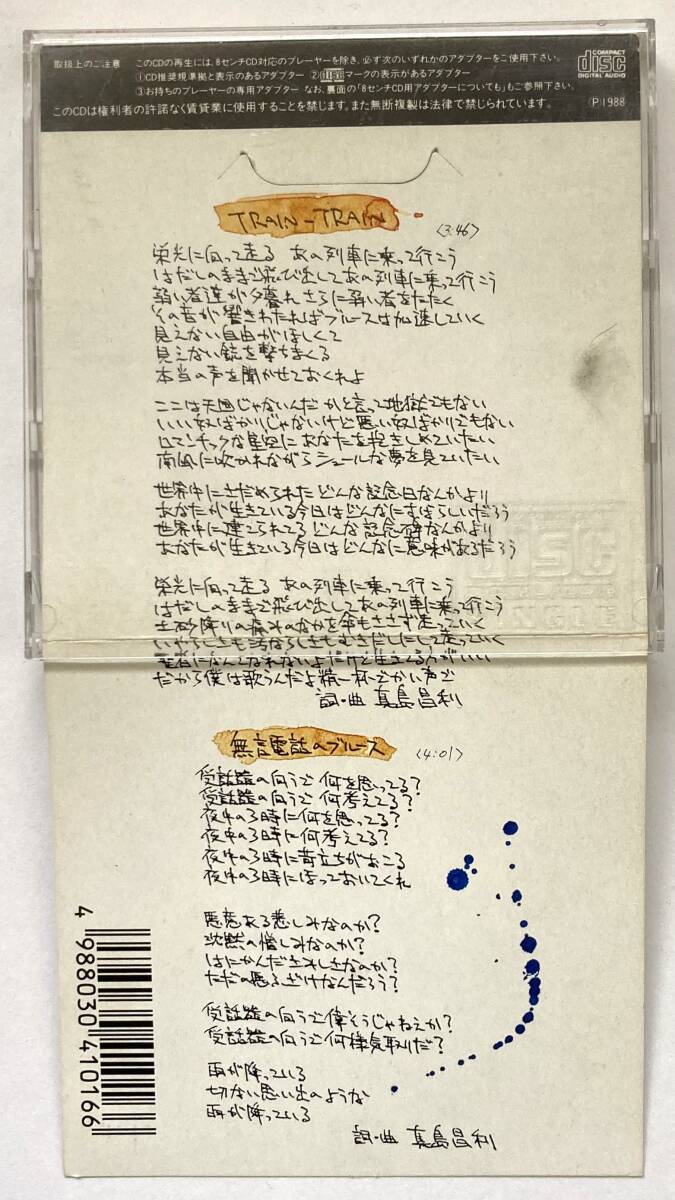 取扱上のご注意 このCDの再生には、8センチCD対応のプレーヤーを除き、必ず次のいずれかのアダプターをご使用下さい。
①CD推奨規準拠と表示のあるアダプター ②マークの表示があるアダプター
③お持ちのプレーヤーの専用アダプター なお、裏面の「8センチCD用アダプターについても」もご参照下さい。
このCDは権利者の許諾なく賃貸業に使用することを禁じます。また無断複製は法律で禁じられています。
COMPACT
disc
DIGITAL AUDIO
Ⓟ1988
TRAIN-TRAIN
<3:46>
栄光に向って走る あの列車に乗って行こう
はだしのままで飛び出してあの列車に乗って行こう
弱い者達が夕暮れ さらに弱い者をたたく
その音が響きわたればブルースは加速していく
見えない自由がほしくて
見えない銃を撃ちまくる
本当の声を聞かせておくれよ
ここは天国じゃないんだ かと言って地獄でもない
いい奴ばかりじゃないけど悪い奴ばかりでもない
ロマンチックな星空に あなたを抱きしめていたい
南風に吹かれながら シュールな夢を見ていたい
世界中にさだめられた どんな記念日なんかより
あなたが生きている今日はどんなにすばらしいだろう
世界中に建てられてる どんな記念碑なんかより
あなたが生きている今日はどんなに意味があるだろう
栄光に向って走る あの列車に乗って行こう
はだしのままで飛び出してあの列車に乗って行こう
土砂降りの痛みのなかを傘もささず走っていく
いやらしさも汚ならしさもむきだしにして走っていく
聖者になんてなれないよだけど生きてる方がいい
だから僕は歌うんだよ精一杯でかい声で
詞・曲 真島昌利
無言電話のブルース
<4:01>
受話器の向うで 何を思ってる?
受話器の向うで 何考えてる?
夜中の3時に何を思ってる?
夜中の3時に何考えてる?
夜中の3時に苛立ちがおこる
夜中の3時にほっておいてくれ
悪意ある悲しみなのか?
沈黙の憎しみなのか?
はにかんださみしさなのか?
ただの悪ふざけなんだろう?
受話器の向うで偉そうじゃねえか?
受話器の向うで何様気取りだ?
雨が降っている
切ない思い出のような
雨が降っている
詞・曲 真島昌利
4 988030 410166